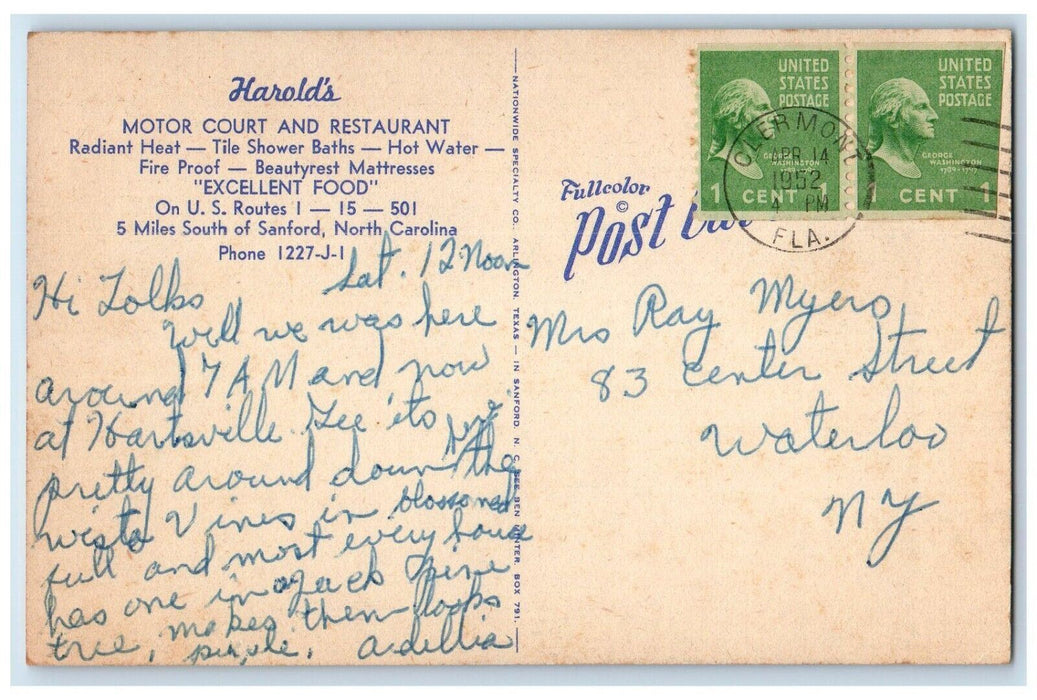 Harold's
MOTOR COURT AND RESTAURANT
Radiant Heat — Tile Shower Baths — Hot Water —
Fire Proof — Beautyrest Mattresses
"EXCELLENT FOOD"
On U. S. Routes 1 — 15 — 501
5 Miles South of Sanford, North Carolina
Phone 1227-J-1
Sat. 12 Noon
Hi Folks
Well we was here
around 7 AM and now
at Hartsville Gee its
pretty around down here the
wista Vines in blossoned
full and most every house
has one in a Jack pine
tree, makes them looks
purple. Adellia
NATIONWIDE SPECIALTY CO., ARLINGTON, TEXAS — IN SANFORD, N. C. SEE BEN WINTER, BOX 791.
Fullcolor
©
Post Car
UNITED
STATES
POSTAGE
GEORGE
WASHINGTON
1 CENT 1
UNITED
STATES
POSTAGE
GEORGE
WASHINGTON
1789-1797
1 CENT 1
CLERMONT
APR 14
1952
PM
FLA.
Mrs Ray Myers
83 Center Street
Waterloo
NY